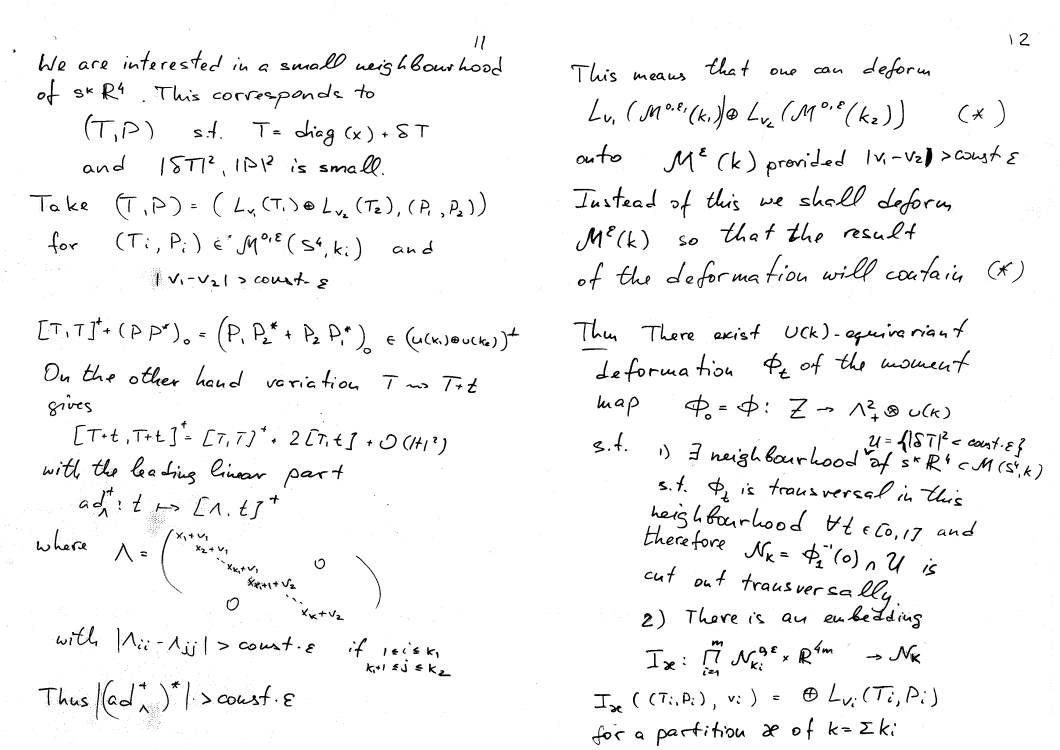 11
We are interested in a small neighbourhood
of sᵏ ℝ⁴. This corresponds to
(T,P) s.t. T = diag (x) + δT
and |δT|², |P|² is small.
Take (T,P) = ( L_{v₁}(T₁) ⊕ L_{v₂}(T₂), (P₁, P₂))
for (Tᵢ, Pᵢ) ∈ M^{0,ε}(S⁴, kᵢ) and
|v₁-v₂| > const·ε
[T,T]⁺ + (P P*)₀ = (P₁ P₂* + P₂ P₁*)₀ ∈ (u(k₁)⊕u(k₂))^⊥
On the other hand variation T ⇝ T+t
gives
[T+t, T+t]⁺ = [T,T]⁺ + 2[T,t] + O(|t|²)
with the leading linear part
ad⁺_Λ : t ↦ [Λ, t]⁺
where Λ = ( x₁+v₁ x₂+v₁ ⋱ x_{k₁}+v₁ x_{k₁+1}+v₂ ⋱ x_k+v₂ 0 0 )
with |Λᵢᵢ - Λⱼⱼ| > const·ε if 1≤i≤k₁
k₁+1 ≤ j ≤ k₂
Thus |(ad⁺_Λ)*| > const·ε
12
This means that one can deform
L_{v₁}(M^{0,ε}(k₁)) ⊕ L_{v₂}(M^{0,ε}(k₂)) (*)
onto M^ε(k) provided |v₁-v₂| > const ε
Instead of this we shall deform
M^ε(k) so that the result
of the deformation will contain (*)
Thm There exist U(k)-equivariant
deformation Φ_t of the moment
map Φ₀ = Φ : Z → Λ²₊ ⊗ u(k)
U = {|δT|² < const·ε}
s.t. 1) ∃ neighbourhood of sᵏ ℝ⁴ ⊂ M(S⁴,k)
s.t. Φ_t is transversal in this
neighbourhood ∀t ∈ [0,1] and
therefore N_k = Φ₁⁻¹(0) ∩ U is
cut out transversally.
2) There is an embedding
I_æ : ∏_{i=1}^{m} N_{kᵢ}^{0,ε} × ℝ^{4m} → N_k
I_æ ((Tᵢ,Pᵢ), vᵢ) = ⊕ L_{vᵢ}(Tᵢ,Pᵢ)
for a partition æ of k = Σkᵢ